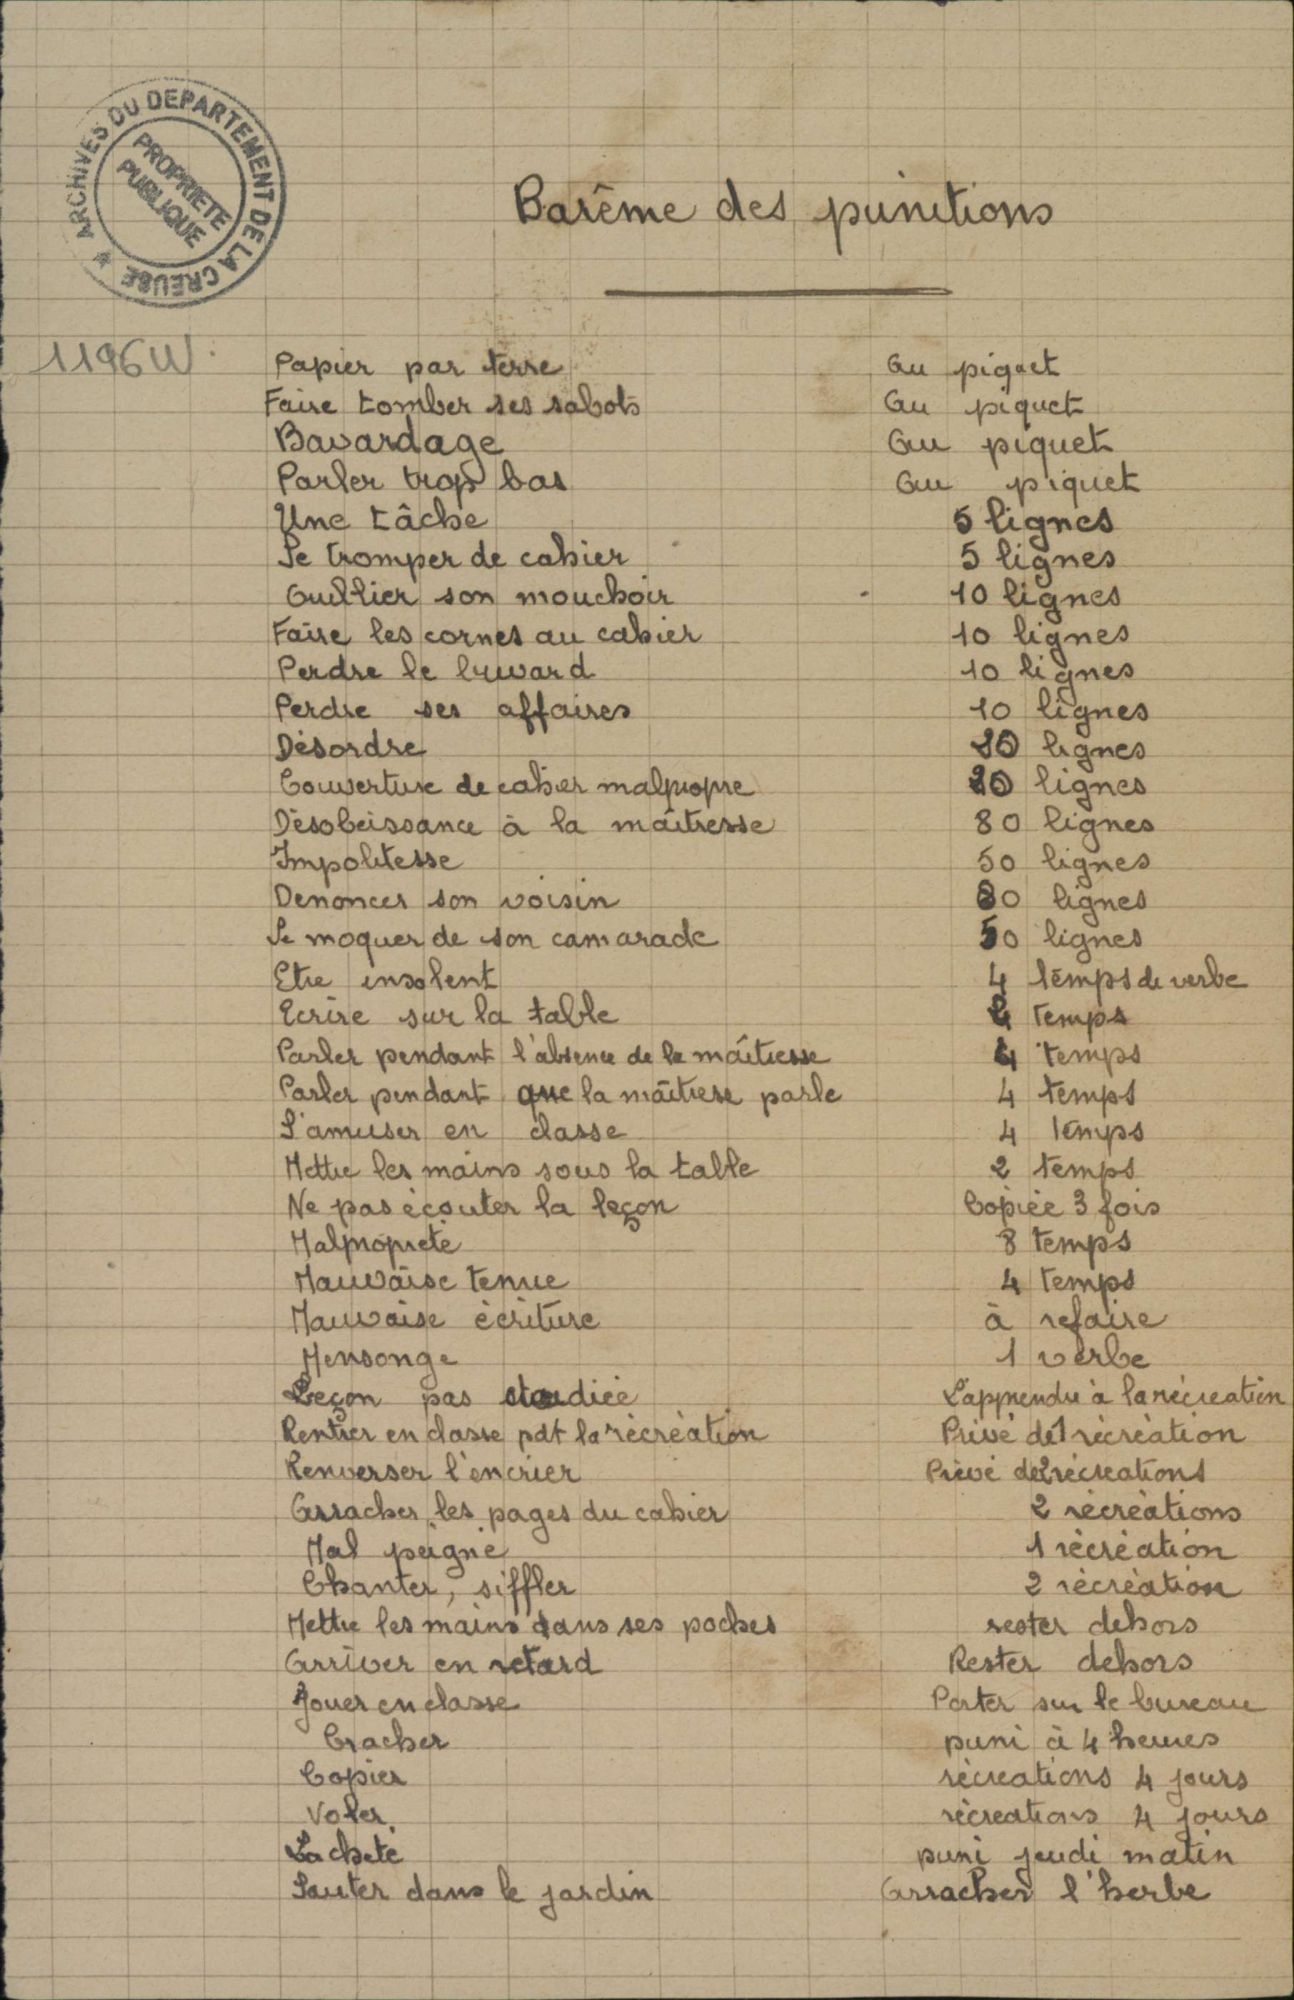 ARCHIVES DU DEPARTEMENT DE LA CREUSE
PROPRIETE
PUBLIQUE
Barême des punitions
1196W
Papier par terre Au piquet
Faire tomber ses sabots Au piquet
Bavardage Au piquet
Parler trop bas Au piquet
Une tâche 5 lignes
Se tromper de cahier 5 lignes
Oublier son mouchoir 10 lignes
Faire les cornes au cahier 10 lignes
Perdre le buvard 10 lignes
Perdre ses affaires 10 lignes
Désordre 20 lignes
Couverture de cahier malpropre 20 lignes
Désobeissance à la maîtresse 80 lignes
Impolitesse 50 lignes
Denoncer son voisin 80 lignes
Se moquer de son camarade 50 lignes
Etre insolent 4 temps de verbe
Ecrire sur la table temps
Parler pendant l'absence de la maîtresse 4 temps
Parler pendant que la maîtresse parle 4 temps
S'amuser en classe 4 temps
Mettre les mains sous la table 2 temps
Ne pas écouter la leçon Copiée 3 fois
Malpropreté 8 temps
Mauvaise tenue 4 temps
Mauvaise écriture à refaire
Mensonge 1 verbe
Leçon pas étudiée L'apprendre à la récreation
Rentrer en classe pdt la récréation Privé de 1 récréation
Renverser l'encrier Privé de 2 récreations
Arracher les pages du cahier 2 récréations
Mal peigné 1 récréation
Chanter, siffler 2 récréation
Mettre les mains dans ses poches rester dehors
Arriver en retard Rester dehors
Jouer en classe Porter sur le bureau
Cracher puni à 4 heures
Copier récreations 4 jours
Voler récreations 4 jours
Lacheté puni jeudi matin
Sauter dans le jardin Arracher l'herbe